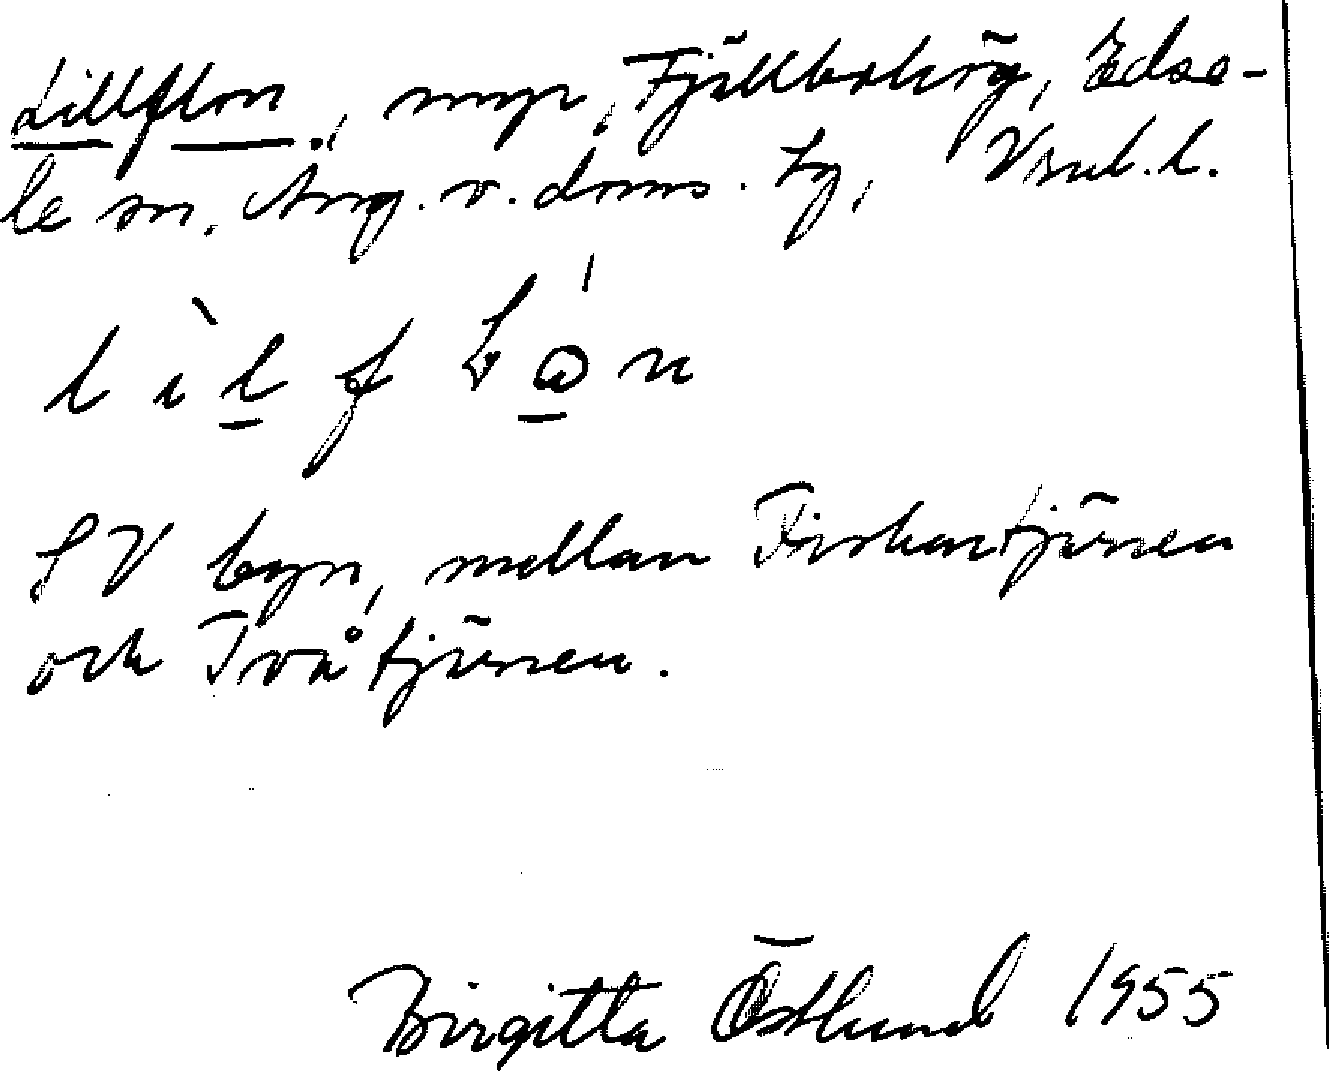 Lillflon, myr, Fjällbohög, Edse-
le sn, Ång. v. doms. tg, Vnul. l.
SV byn, mellan Fiskartjärnen
och Tvåtjärnen.
Birgitta Östlund 1955